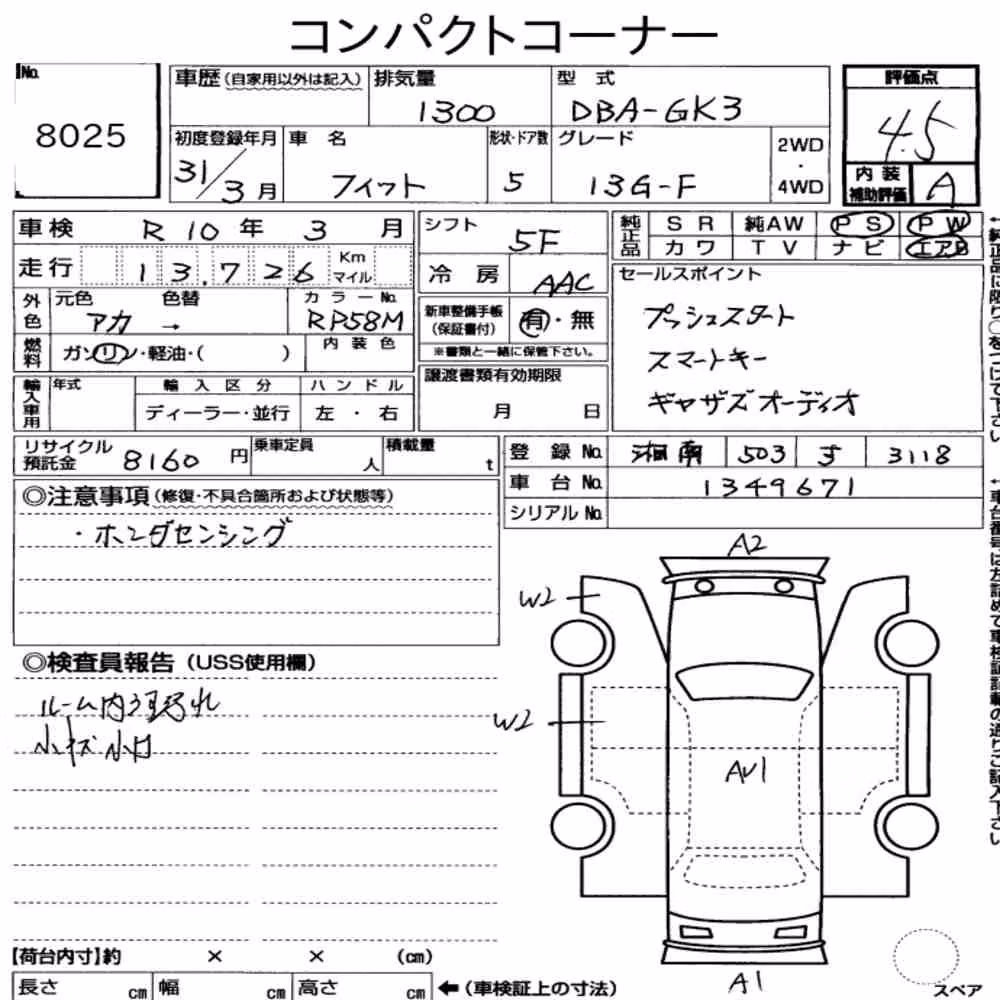 コンパクトコーナー
No. 8025
車歴(自家用以外は記入) 排気量 1300 型式 DBA-GK3
評価点 4.5
初度登録年月 31/3月 車名 フィット 形状・ドア数 5 グレード 13G-F 2WD・4WD
内装補助評価 A
車検 R 10 年 3 月
走行 13,726 Km マイル
外色 元色 アカ → 色替 カラーNo. RP58M
燃料 ガソリン・軽油・( ) 内装色
輸入車用 年式 輸入区分 ディーラー・並行 ハンドル 左・右
シフト 5F
冷房 AAC
新車整備手帳(保証書付) 有・無
※書類と一緒に保管下さい。
譲渡書類有効期限
月 日
純正品 SR 純AW PS PW
カワ TV ナビ エアB
セールスポイント
プッシュスタート
スマートキー
ギャザズオーディオ
←純正品に限り○をつけて下さい
リサイクル預託金 8160 円 乗車定員 人 積載量 t
登録No. 湘南 503 す 3118
車台No. 1349671
シリアルNo.
←車台番号は左詰めで車検証記載の通りご記入下さい
◎注意事項(修復・不具合箇所および状態等)
・ホンダセンシング
◎検査員報告(USS使用欄)
ルーム内
小キズ 小凹
A2
W2
W2
AU1
A1
スペア
【荷台内寸】約 × × (cm)
長さ cm 幅 cm 高さ cm ←(車検証上の寸法)